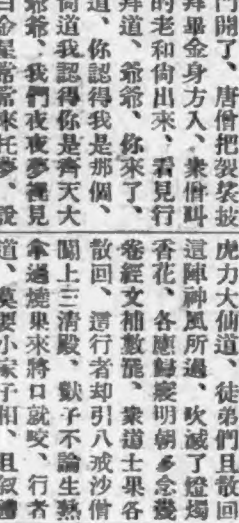 門開了、唐僧把袈裟披
拜畢金身方入、衆僧叫
的老和尚出來、看見行
拜道、爺爺、你來了、
道、你認得我是那個、
尚道我認得你是齊天大
爺爺、我們夜夜夢裡見
白金星常常來托夢、說
虎力大仙道、徒弟們且散回
這陣神風所過、吹滅了燈燭
香花、各應歸寢明朝多念幾
卷經文補數罷、衆道士果各
散回、這行者却引八戒沙僧
闖上三清殿、獃子不論生熟
拿過燒果來將口就咬、行者
道、莫要小家子相、且叙禮